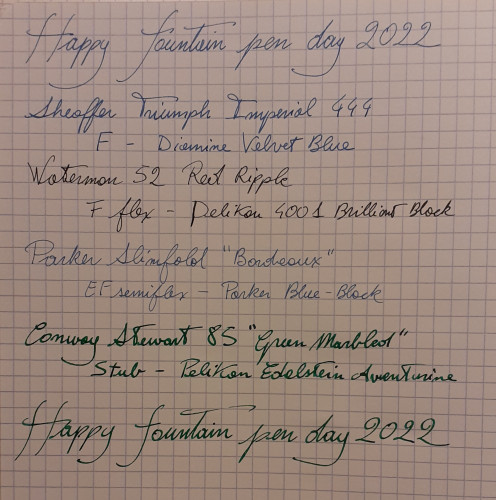 Happy fountain pen day 2022
Sheaffer Triumph Imperial 444
F - Diamine Velvet Blue
Waterman 52 Red Ripple
F flex - Pelikan 4001 Brilliant Black
Parker Slimfold "Bordeaux"
EF semiflex - Parker Blue-Black
Conway Stewart 85 "Green Marbled"
Stub - Pelikan Edelstein Aventurine
Happy fountain pen day 2022